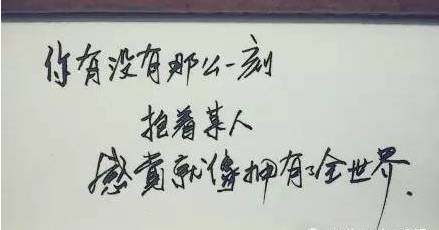 你有没有那么一刻
抱着某人
感觉就像拥有了全世界.